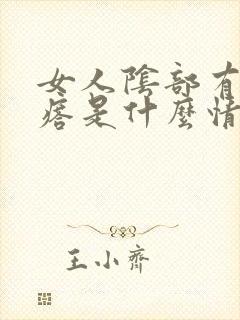 女人陰部有
痞是什麼情
王小齊